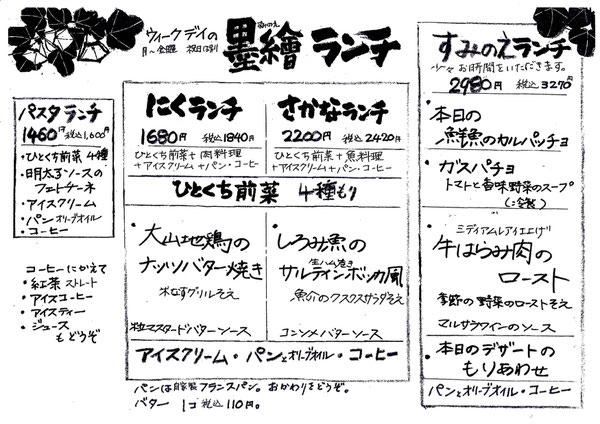 ウィークデイの
月〜金曜 祝日は別
墨繪ランチ
すみのえ
パスタランチ
1460円 税込1,600円
・ひとくち前菜 4種
・明太子ソースの
フェトチーネ
・アイスクリーム
・パン オリーブオイル
・コーヒー
コーヒーにかえて
・紅茶 ストレート
・アイスコーヒー
・アイスティー
・ジュース
もどうぞ
にくランチ
1680円 税込1840円
ひとくち前菜+肉料理
+アイスクリーム+パン・コーヒー
さかなランチ
2200円 税込2420円
ひとくち前菜+魚料理
+アイスクリーム+パン・コーヒー
ひとくち前菜 4種もり
・大山地鶏の
ナッツバター焼き
米なすグリルそえ
粒マスタードバターソース
・しろみ魚の
生ハム巻き
サルティンボッカ風
魚介のクスクスサラダそえ
コンソメバターソース
アイスクリーム・パンとオリーブオイル・コーヒー
パンは自家製フランスパン。おかわりをどうぞ。
バター 1コ 税込110円。
すみのえランチ
少々お時間をいただきます。
2980円 税込3270円
・本日の
鮮魚のカルパッチョ
・ガスパチョ
トマトと香味野菜のスープ
(冷製)
ミディアムレアイ上げ
・牛はらみ肉の
ロースト
季節の野菜のローストそえ
マルサラワインのソース
・本日のデザートの
もりあわせ
パンとオリーブオイル・コーヒー